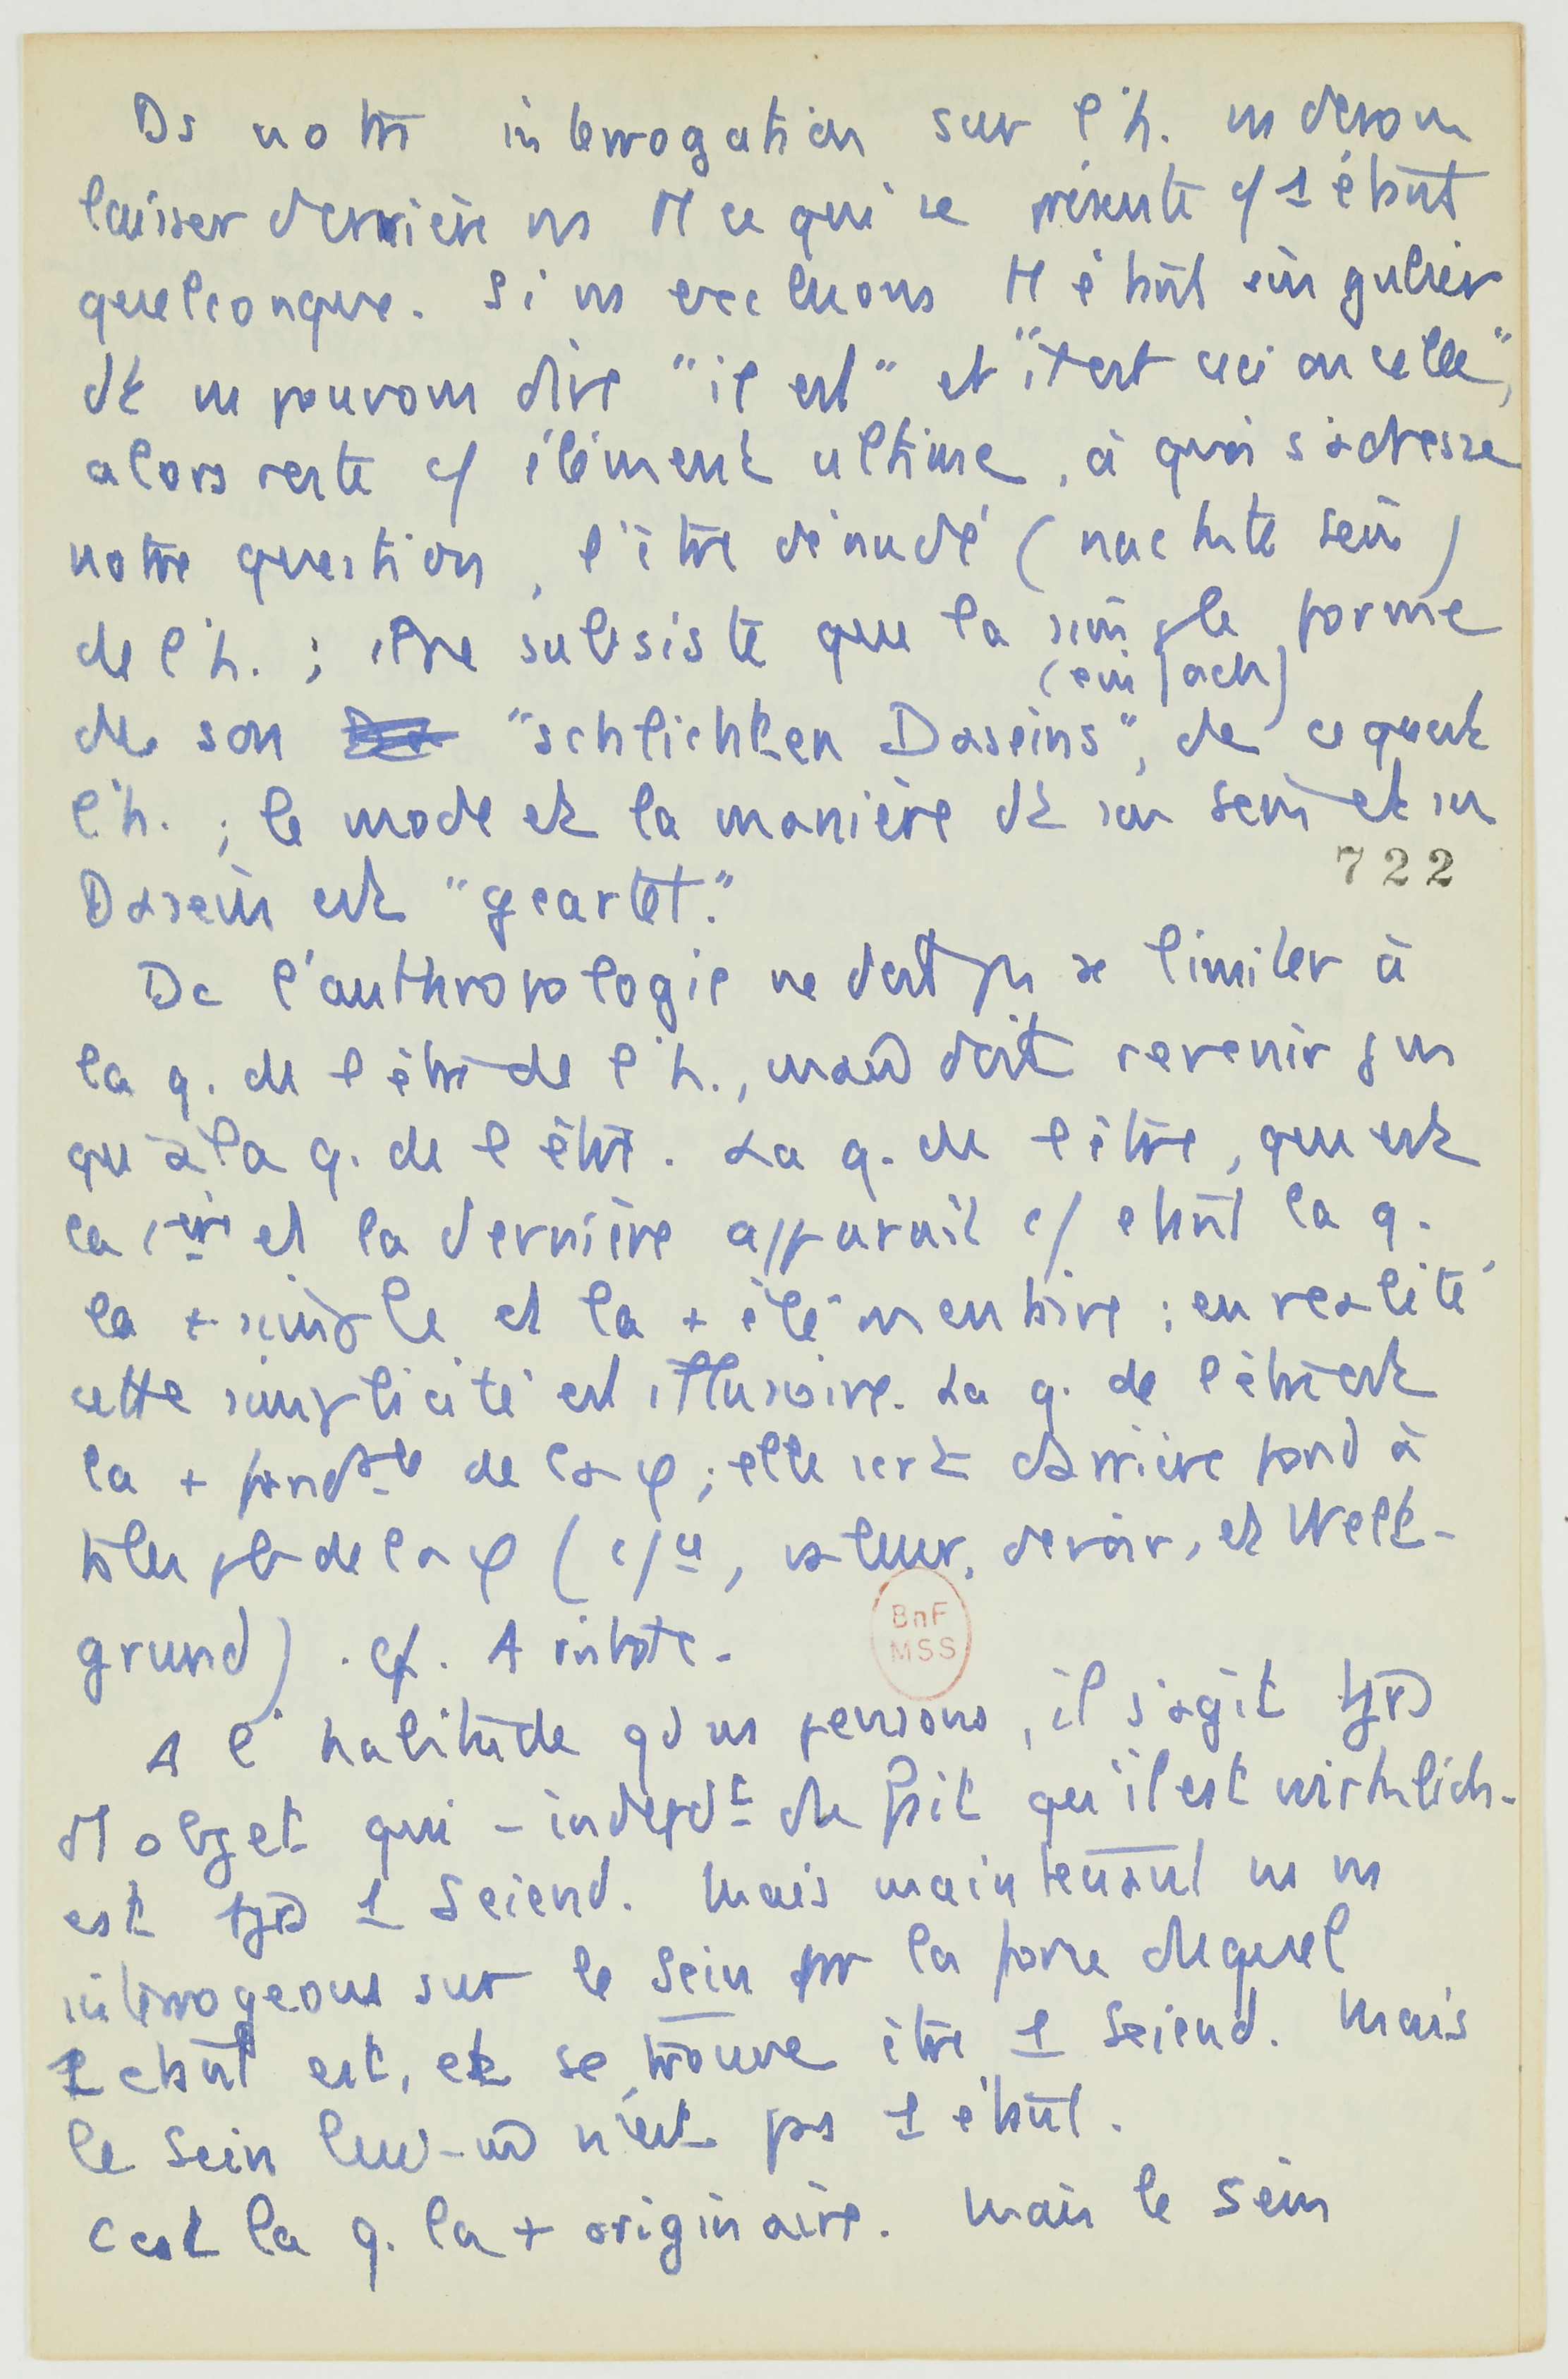 Ds notre interrogation sur l'h. ns devons
laisser derrière ns tt ce qui se présente c/ 1 étant
quelconque. Si ns excluons tt étant singulier
dt ns pouvons dire "il est" et "il est ceci ou cela",
alors reste c/ élément ultime, à quoi s'adresse
notre question, l'être dénudé (nackte Sein)
de l'h. ; il ne subsiste que la simple forme
(einfach)
de son "schlichten Daseins", de ce qu'est
l'h. ; le mode et la manière dt son Sein et son
Dasein est "geartet."
722
Dc l'anthropologie ne doit pas se limiter à
la q. de l'être de l'h., mais doit revenir jus
qu'à la q. de l'être. La q. de l'être, qui est
la 1ère et la dernière apparaît c/ étant la q.
la + simple et la + élémentaire ; en réalité
cette simplicité est illusoire. La q. de l'être est
la + fondtale de la φ ; elle sert d'arrière fond à
ttes les pb de la φ (c/ce, valeur, devoir, et Welt-
grund). cf. Aristote.
BnF
MSS
A l'habitude qd ns pensons, il s'agit tjrs
d'1 objet qui - indépdt du fait qu'il est wirklich -
est tjrs 1 Seiend. Mais maintenant ns ns
interrogeons sur le Sein par la force duquel
1 étant est, et se trouve être 1 Seiend. Mais
le Sein lui-m n'est pas 1 étant.
C'est la q. la + originaire. Mais le Sein